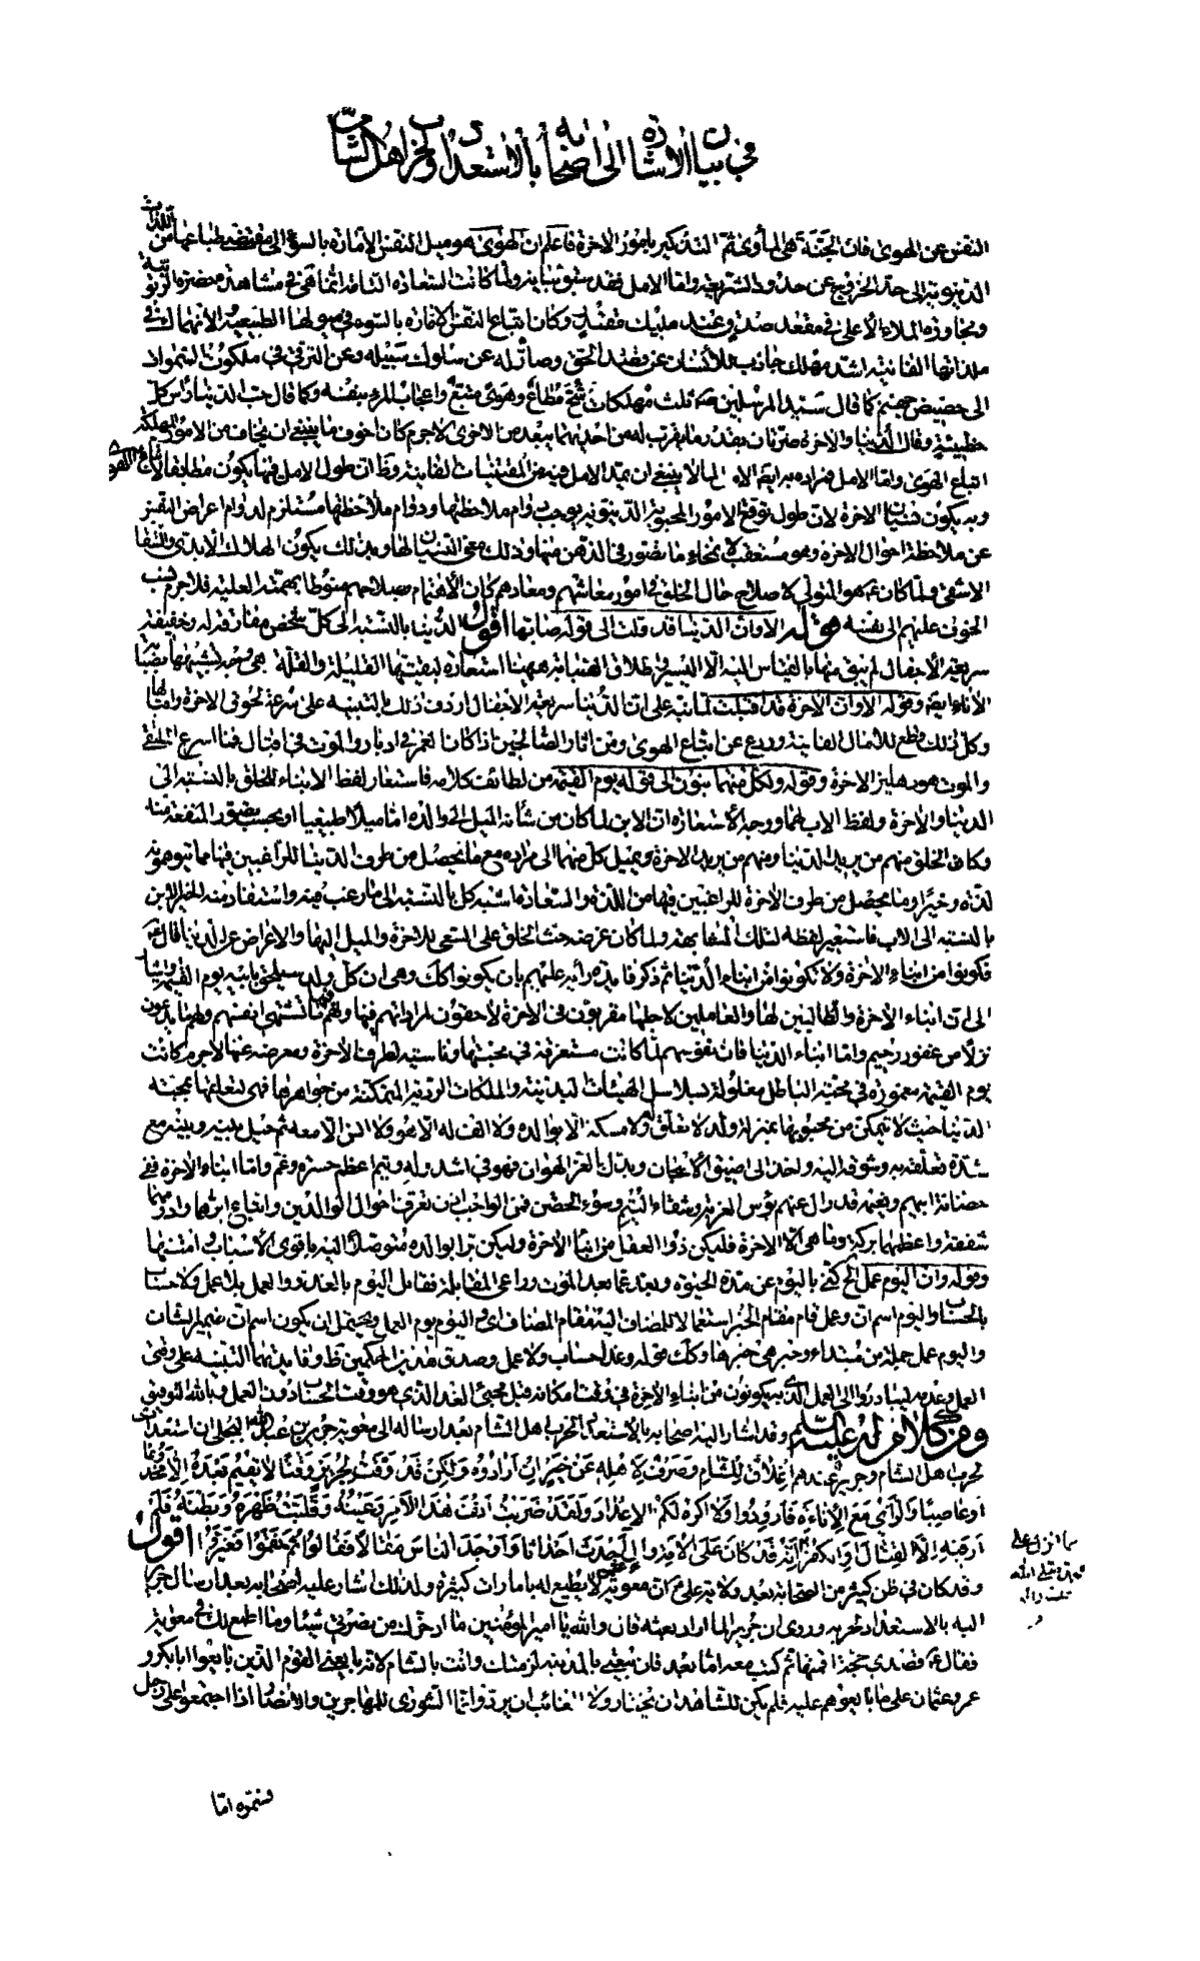 في بيان الاشارة الى اصحابه بالاستعداد لحرب اهل الشام
النفس عن الهوى فان الجنة هي المأوى ثم التذكير بامور الاخرة فاعلم ان الهوى هو ميل النفس الامارة بالسوء الى مقتضى طباعها من اللذات
الدنيوية الى حد الخروج عن حدود الشريعة واما الامل فقد سبق بيانه ولما كانت السعادة التامة انما هي في مشاهدة حضرة الربوبية
ومجاورة الملاء الأعلى في مقعد صدق عند مليك مقتدر وكان اتباع النفس الامارة بالسوء في ميولها الطبيعية والانهماك في
ملذاتها الفانية اشد مهلك جاذب للانسان عن قصد الحق وصاد له عن سلوك سبيله وعن الترقي في ملكوت السموات
الى حضيض جهنم كما قال سيد المرسلين ص ثلث مهلكات شح مطاع وهوى متبع واعجاب المرء بنفسه وكما قال حب الدنيا راس كل
خطيئة وقال الدنيا والاخرة ضرتان بقدر ما يقرب له من احديهما يبعد من الاخرى لاجرم كان اخوف ما ينبغي ان يخاف من الامور المهلكة
اتباع الهوى واما الامل فمراده به ايضا الامل لما لا ينبغي ان يمد الامل فيه من المقتنيات الفانية وظ ان طول الامل فيها يكون مطابقا لاتباع الهوى
وبه يكون نسيان الاخرة لان طول توقع الامور المحبوبة الدنيوية يوجب دوام ملاحظتها ودوام ملاحظتها مستلزم لدوام اعراض النفس
عن ملاحظة احوال الاخرة وهو مستعقب لانمحاء ما تصور في الذهن منها وذلك معنى النسيان لها وبذلك يكون الهلاك الابدي والشقاء
الاشقى ولما كان ع هو المتولي لاصلاح حال الخلق في امور معاشهم ومعادهم كان الاهتمام بصلاحهم منوطا بهمته العلية فلاجرم نسب
الخوف عليهم الى نفسه قوله الا وان الدنيا قد ولت الى قوله صابها اقول الدنيا بالنسبة الى كل شخص مفارقة له وخفيفة
سريعة الاجفال لم يبق منها بالقياس اليه الا اليسير فاطلاق الصبابة ههنا استعارة لبقيتها القليلة والقلة هي وجه تشبيهها بصبابة
الاناء ايض وقوله الا وان الاخرة قد اقبلت لما نبه على ان الدنيا سريعة الاجفال اردف ذلك بالتنبيه على سرعة لحوق الاخرة واقبالها
وكل ذلك قطع للامال الفانية وردع عن اتباع الهوى ومن اثار الصالحين اذا كان العمر في ادبار والموت في اقبال فما اسرع الملتقى
والموت هو دهليز الاخرة وقوله ولكل منهما بنون الى قوله يوم القيمة من لطائف كلامه فاستعار لفظ الابناء للخلق بالنسبة الى
الدنيا والاخرة ولفظ الاب لهما ووجه الاستعارة ان الابن لما كان من شأنه الميل الى والده اما ميلا طبيعيا او بحسب تصور المنفعة منه
وكان الخلق منهم من يريد الدنيا ومنهم من يريد الاخرة ويميل كل منهما الى مراده مع ما يحصل من طرف الدنيا للراغبين فيها مما يتوهمونه
لذة وخيرا وما يحصل من طرف الاخرة للراغبين فيها من اللذة والسعادة اشبه كل بالنسبة الى ما رغب فيه واستفاد منه الخير الابن
بالنسبة الى الاب فاستعير لفظه لتلك المشابهة ولما كان غرضه حث الخلق على السعي للاخرة والميل اليها والاعراض عن الدنيا قال ع
فكونوا من ابناء الاخرة ولا تكونوا من ابناء الدنيا ثم ذكر فايدة رأيه عليهم بان يكونوا كك وهي ان كل ولد سيلحق بابيه يوم القيمة واشار
الى ان ابناء الاخرة والطالبين لها والعاملين لاجلها مقربون في الاخرة لاحقون لمراداتهم فيها ولهم فيها ما تشتهى انفسهم ولهم ما يدعون
نزلا من غفور رحيم واما ابناء الدنيا فان نفوسهم لما كانت مستغرقة في محبتها وناسية لطرف الاخرة ومعرضة عنها لاجرم كانت
يوم القيمة مغمورة في محبة الباطل مغلولة بسلاسل الهيئات البدنية والملكات الردية المتمكنة من جواهرها فهي لتعلقها بمحبة
الدنيا حيث لا تتمكن من محبوبها بمنزلة ولد لا تعلق له ولا مسكة الا بوالده ولا الف له الا هو ولا انس الا معه ثم حيل بينه وبينه مع
شدة تعلقه به وشوقه اليه واخذ الى اضيق الاسجان وبدل بالعز الهوان فهو في اشد وله ويتم اعظم حسرة وغم واما ابناء الاخرة ففي
حضانة ابيهم ونعيمه قد زال عنهم بؤس الغربة وشقاء اليتم وسوء الحضن فمن الواجب اذن تعرف احوال الوالدين واتباع ابرهما وادومهما
شفقة واعظمهما بركة وما هي الا الاخرة فليكن ذو العقل من ابناء الاخرة وليكن برا بوالده متوصلا اليه باقوى الاسباب وامتنها
وقوله وان اليوم عمل الخ كنى باليوم عن مدة الحيوة وبغد عما بعد الموت وراعى المقابلة فقابل اليوم بالغد والعمل بلا عمل ولا حساب
بالحساب واليوم اسم ان وعمل قام مقام الخبر استعمالا للمضاف اليه مقام المضاف اي اليوم يوم العمل ويحتمل ان يكون اسم ان ضمير الشان
واليوم عمل جملة من مبتداء وخبر هي خبرها وكك قوله وغدا حساب ولا عمل وصدق هذين الحكمين ظ وفايدتهما التنبيه على وقتي
العمل وعدمه ليبادروا الى العمل الذي به يكونون من ابناء الاخرة في وقت امكانه قبل مجيئ الغد الذي هو وقت الحساب دون العمل وبالله التوفيق
ومن كلام له عليه السلم وقد اشار اليه اصحابه بالاستعداد لحرب اهل الشام بعد ارساله الى معوية جرير بن عبد الله البجلي ان استعدادي
لحرب اهل الشام وجرير عندهم اغلاق للشام وصرف لاهله عن خير ان ارادوه ولكن قد وقت لجرير وقتا لا يقيم بعده الا مخدوعا
او عاصيا والرأي مع الاناءة فارودوا ولا اكره لكم الاعداد ولقد ضربت انف هذا الامر وعينه وقلبت ظهره وبطنه فلم
ار فيه الا القتال او الكفر انه قد كان على الامة وال احدث احداثا واوجد الناس مقالا فقالوا ثم نقموا فغيروا اقول
بما انزل على
محمد صلى الله
عليه واله
وقد كان في ظن كثير من الصحابة بعد ولاية علي ع ان معوية لا يطيع له بامارات كثيرة ولذلك اشار عليه اصحابه بعد ارسال جرير
اليه بالاستعداد لحربه وروى ان جريرا لما اراد بعثه قال والله يا امير المؤمنين ما ادخرك من نصرتي شيئا وما اطمع لك في معوية
فقال ع قصدي حجة اقمتها ثم كتب معه اما بعد فان بيعتي بالمدينة لزمتك وانت بالشام لانه بايعني القوم الذين بايعوا ابا بكر و
عمر وعثمان على ما بايعوهم عليه فلم يكن للشاهد ان يختار ولا للغائب ان يرد وانما الشورى للمهاجرين والانصار اذا اجتمعوا على رجل
وسموه اما